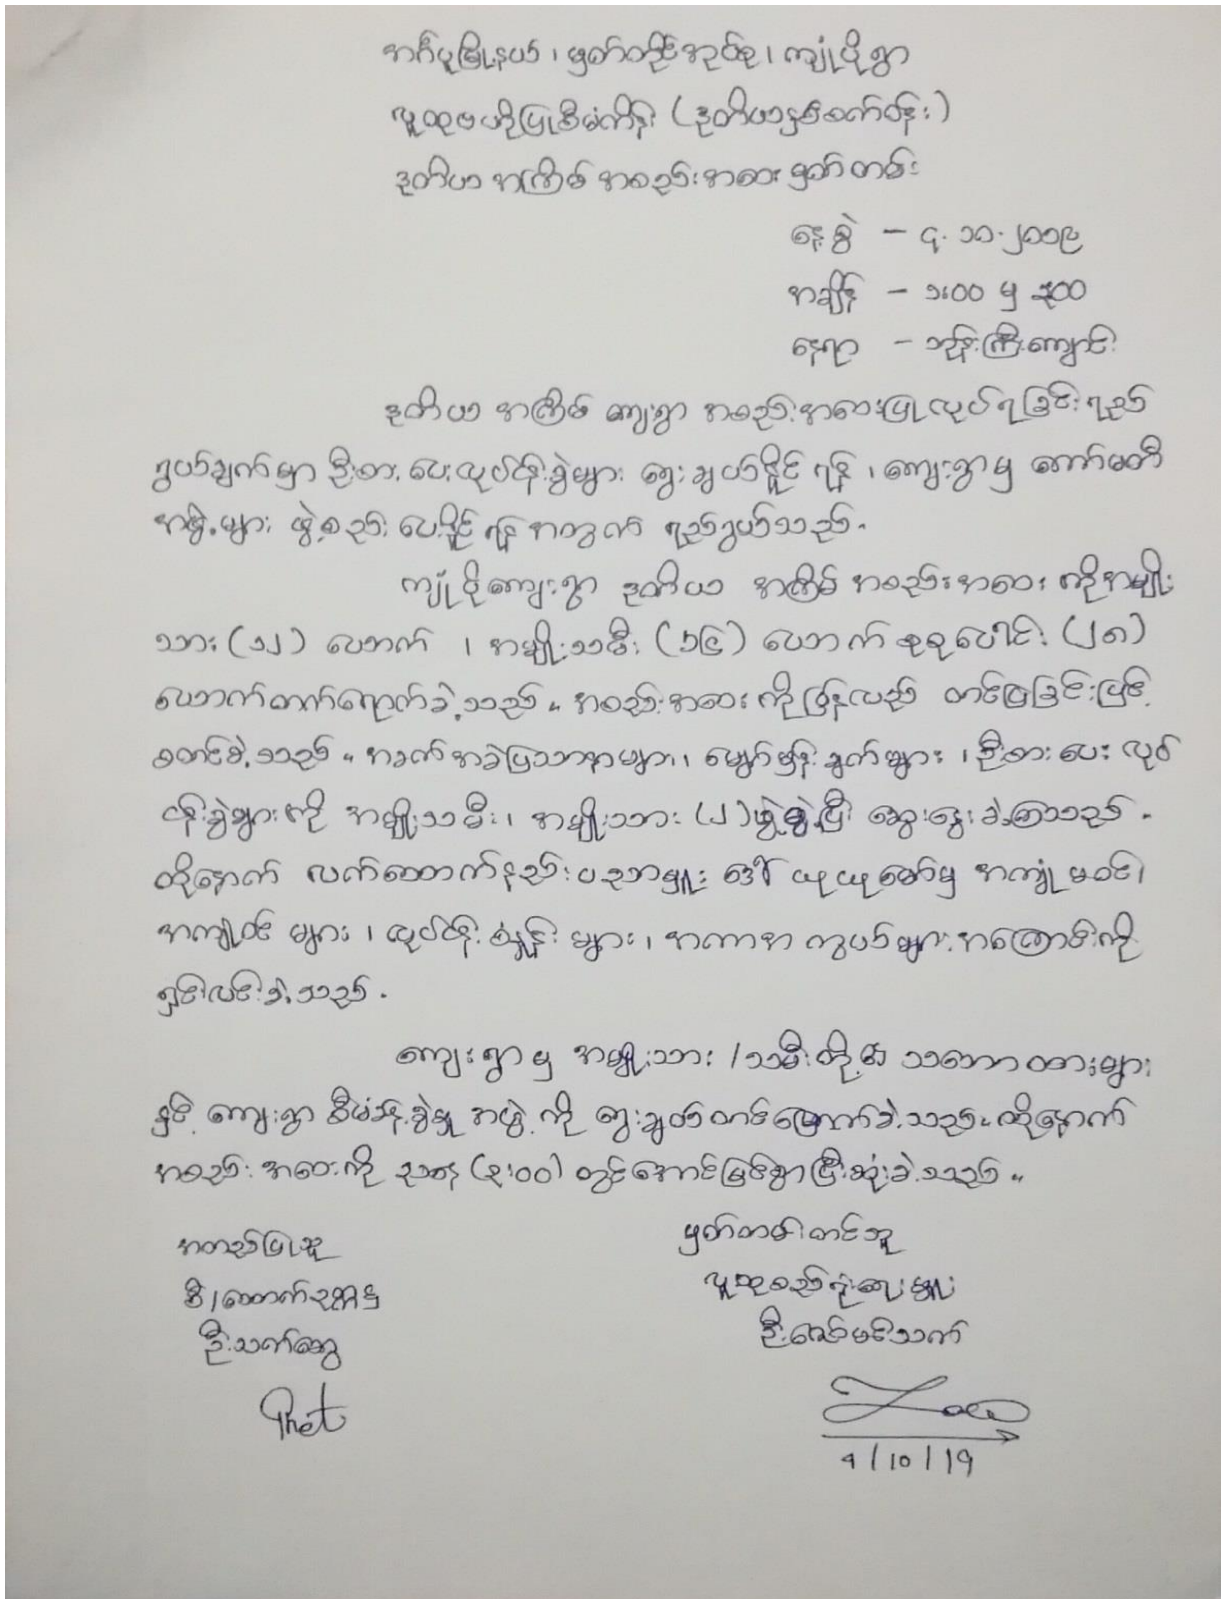 အင်္ဂပူမြို့နယ်၊ မှတ်တိုင်အုပ်စု၊ ကျုံပိုရွာ
လူထုဗဟိုပြုစီမံကိန်း (ဒုတိယနှစ်စက်ဝန်း)
ဒုတိယအကြိမ် အစည်းအဝေး မှတ်တမ်း
နေ့စွဲ – ၄.၁၀.၂၀၁၉
အချိန် – ၁:၀၀ မှ ၃:၀၀
နေရာ – ဘုန်းကြီးကျောင်း
ဒုတိယ အကြိမ် ကျေးရွာ အစည်းအဝေးပြုလုပ်ရခြင်း ရည်
ရွယ်ချက်မှာ ဦးစားပေးလုပ်ငန်းခွဲများ ရွေးချယ်နိုင်ရန်၊ ကျေးရွာမှ ကော်မတီ
အဖွဲ့များ ဖွဲ့စည်းပေးနိုင်ရန်အတွက် ရည်ရွယ်သည်။
ကျုံပိုကျေးရွာ ဒုတိယ အကြိမ် အစည်းအဝေး ကိုအမျိုး
သား (၁၂) ယောက် ၊ အမျိုးသမီး (၁၆) ယောက် စုစုပေါင်း (၂၈)
ယောက်တက်ရောက်ခဲ့သည်။ အစည်းအဝေးကို ပြန်လည် တင်ပြခြင်းဖြင့်
စတင်ခဲ့သည်။ အခက်အခဲပြဿနာများ၊ မျှော်မှန်းချက်များ ၊ ဦးစားပေး လုပ်
ငန်းခွဲများကို အမျိုးသမီး၊ အမျိုးသား (၂)ဖွဲ့ခွဲ့ပြီး ဆွေးနွေးခဲ့ကြသည်။
ထို့နောက် လက်ထောက်နည်းပညာမှူး ဒေါ်ယုယုမော်မှ အကျုံးမဝင်၊
အကျုံးဝင်များ ၊ လုပ်ငန်းညွှန်းများ ၊ အကာအကွယ်များအကြောင်းကို
ရှင်းလင်းခဲ့သည်။
ကျေးရွာမှ အမျိုးသား/သမီးတို့၏ သဘောထားများ
နှင့် ကျေးရွာ စီမံခန့်ခွဲမှု အဖွဲ့ကို ရွေးချယ်တင်မြှောက်ခဲ့သည်။ ထို့နောက်
အစည်းအဝေးကို ညနေ (၃:၀၀) တွင်အောင်မြင်စွာပြီးဆုံးခဲ့သည်။
အတည်ပြုသူ
စီ/ထောက်ဥက္ကဋ္ဌ
ဦးသက်ဆွေ
Thet
မှတ်တမ်းတင်သူ
လူထုစည်းရုံးရေးမှူး
ဦးဇော်မင်းသက်
4/10/19